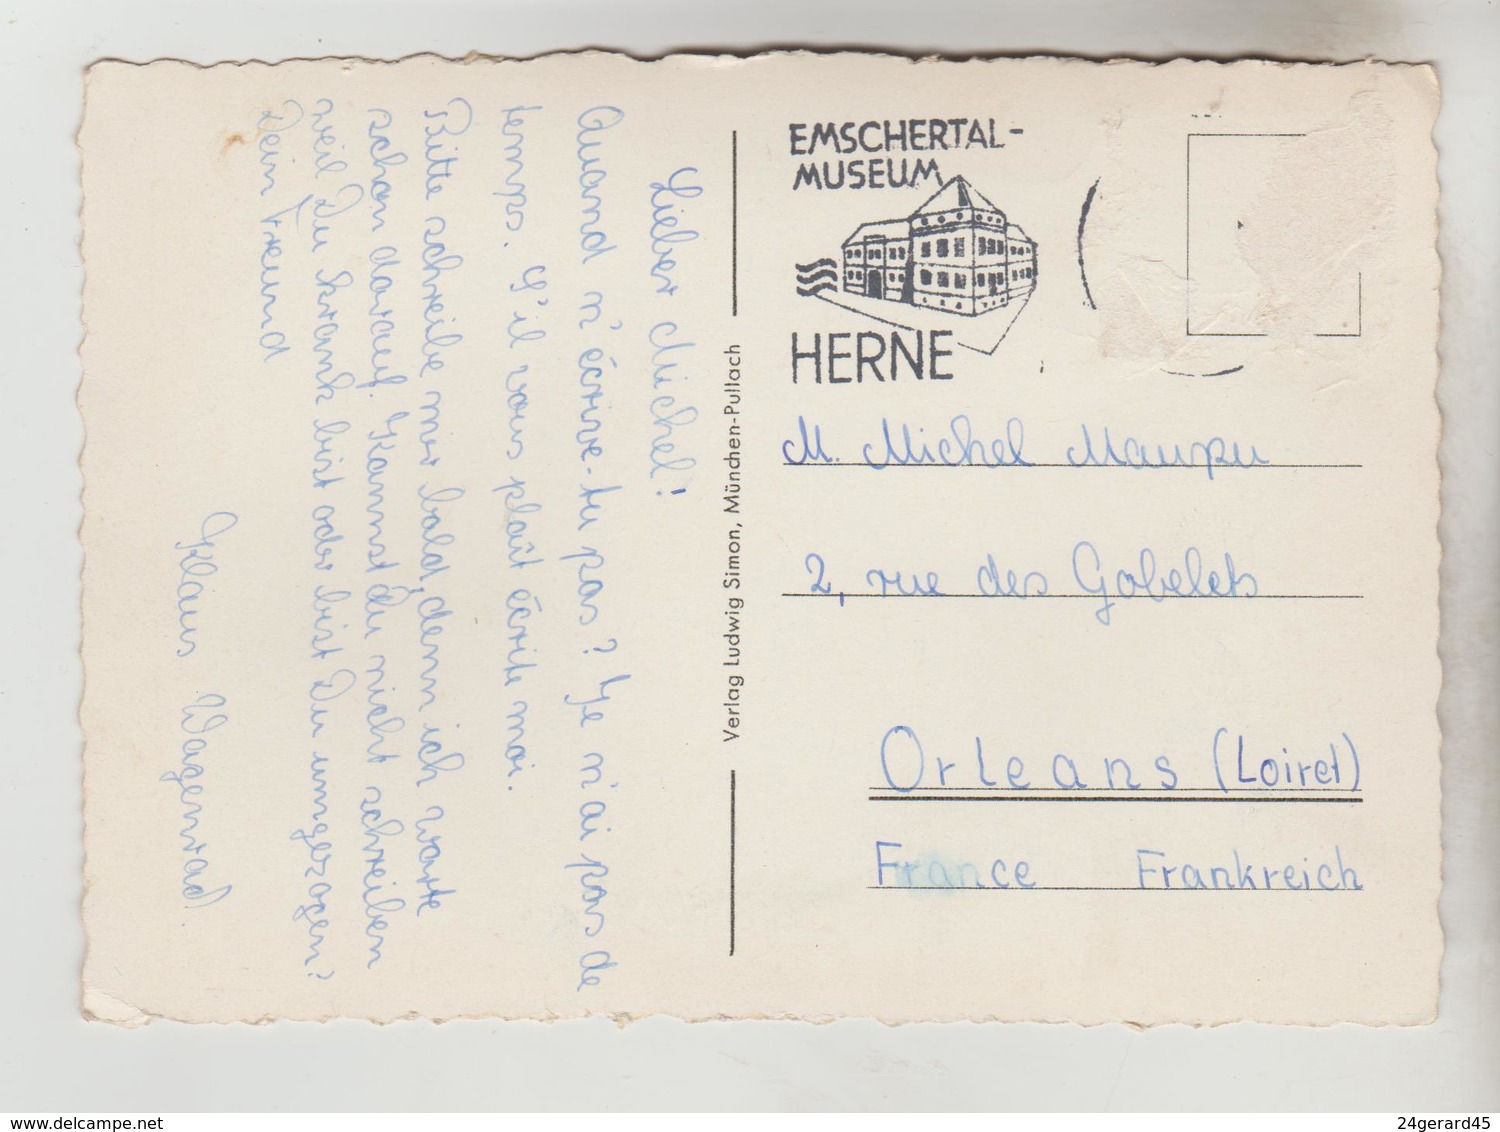 Lieber Michel!
Quand n'écrive-tu pas? Je n'ai pas de
temps. S'il vous plaît écrite moi.
Bitte schreibe mir bald, denn ich warte
schon darauf. Kannst du nicht schreiben
weil Du krank bist oder bist Du umgezogen?
Dein Freund
Klaus Wagenrad.
Verlag Ludwig Simon, München-Pullach
EMSCHERTAL-
MUSEUM
HERNE
M. Michel Maupu
2, rue des Gobelets
Orleans (Loiret)
France Frankreich
delcampe.net
24gerard45